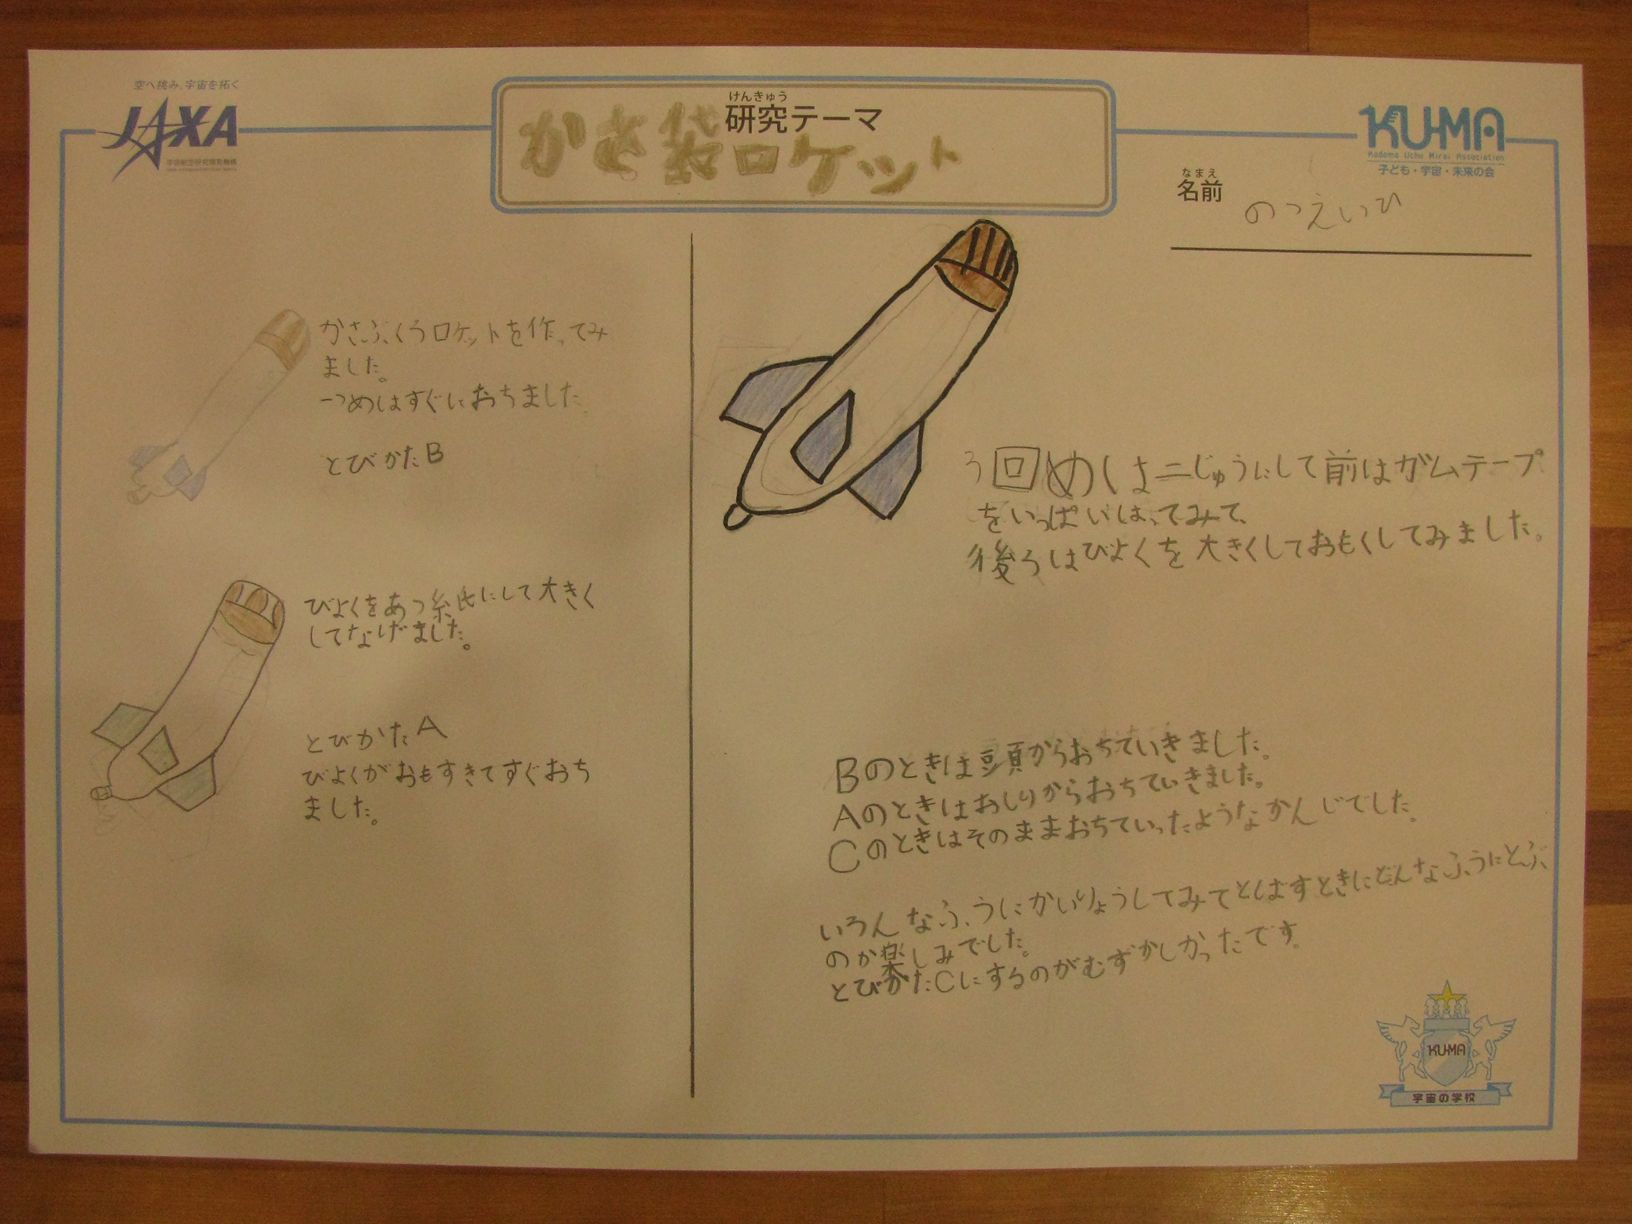 空へ挑み、宇宙を拓く
JAXA
宇宙航空研究開発機構
けんきゅう
研究テーマ
かさ袋ロケット
KU-MA
Kodomo Uchu Mirai Association
子ども・宇宙・未来の会
なまえ
名前
のつえいひ
かさぶくろロケットを作ってみ
ました。
一つめはすぐにおちました。
とびかたB
びよくをあつ紙にして大きく
してなげました。
とびかたA
びよくがおもすきてすぐおち
ました。
3回めは二じゅうにして前はガムテープ
をいっぱいはってみて、
後ろはびよくを大きくしておもくしてみました。
Bのときは頭からおちていきました。
Aのときはおしりからおちていきました。
Cのときはそのままおちていったようなかんじでした。
いろんなふうにかいりょうしてみてとばすときにどんなふうにとぶ
のか楽しみでした。
とびかたCにするのがむずかしかったです。
KU-MA
宇宙の学校